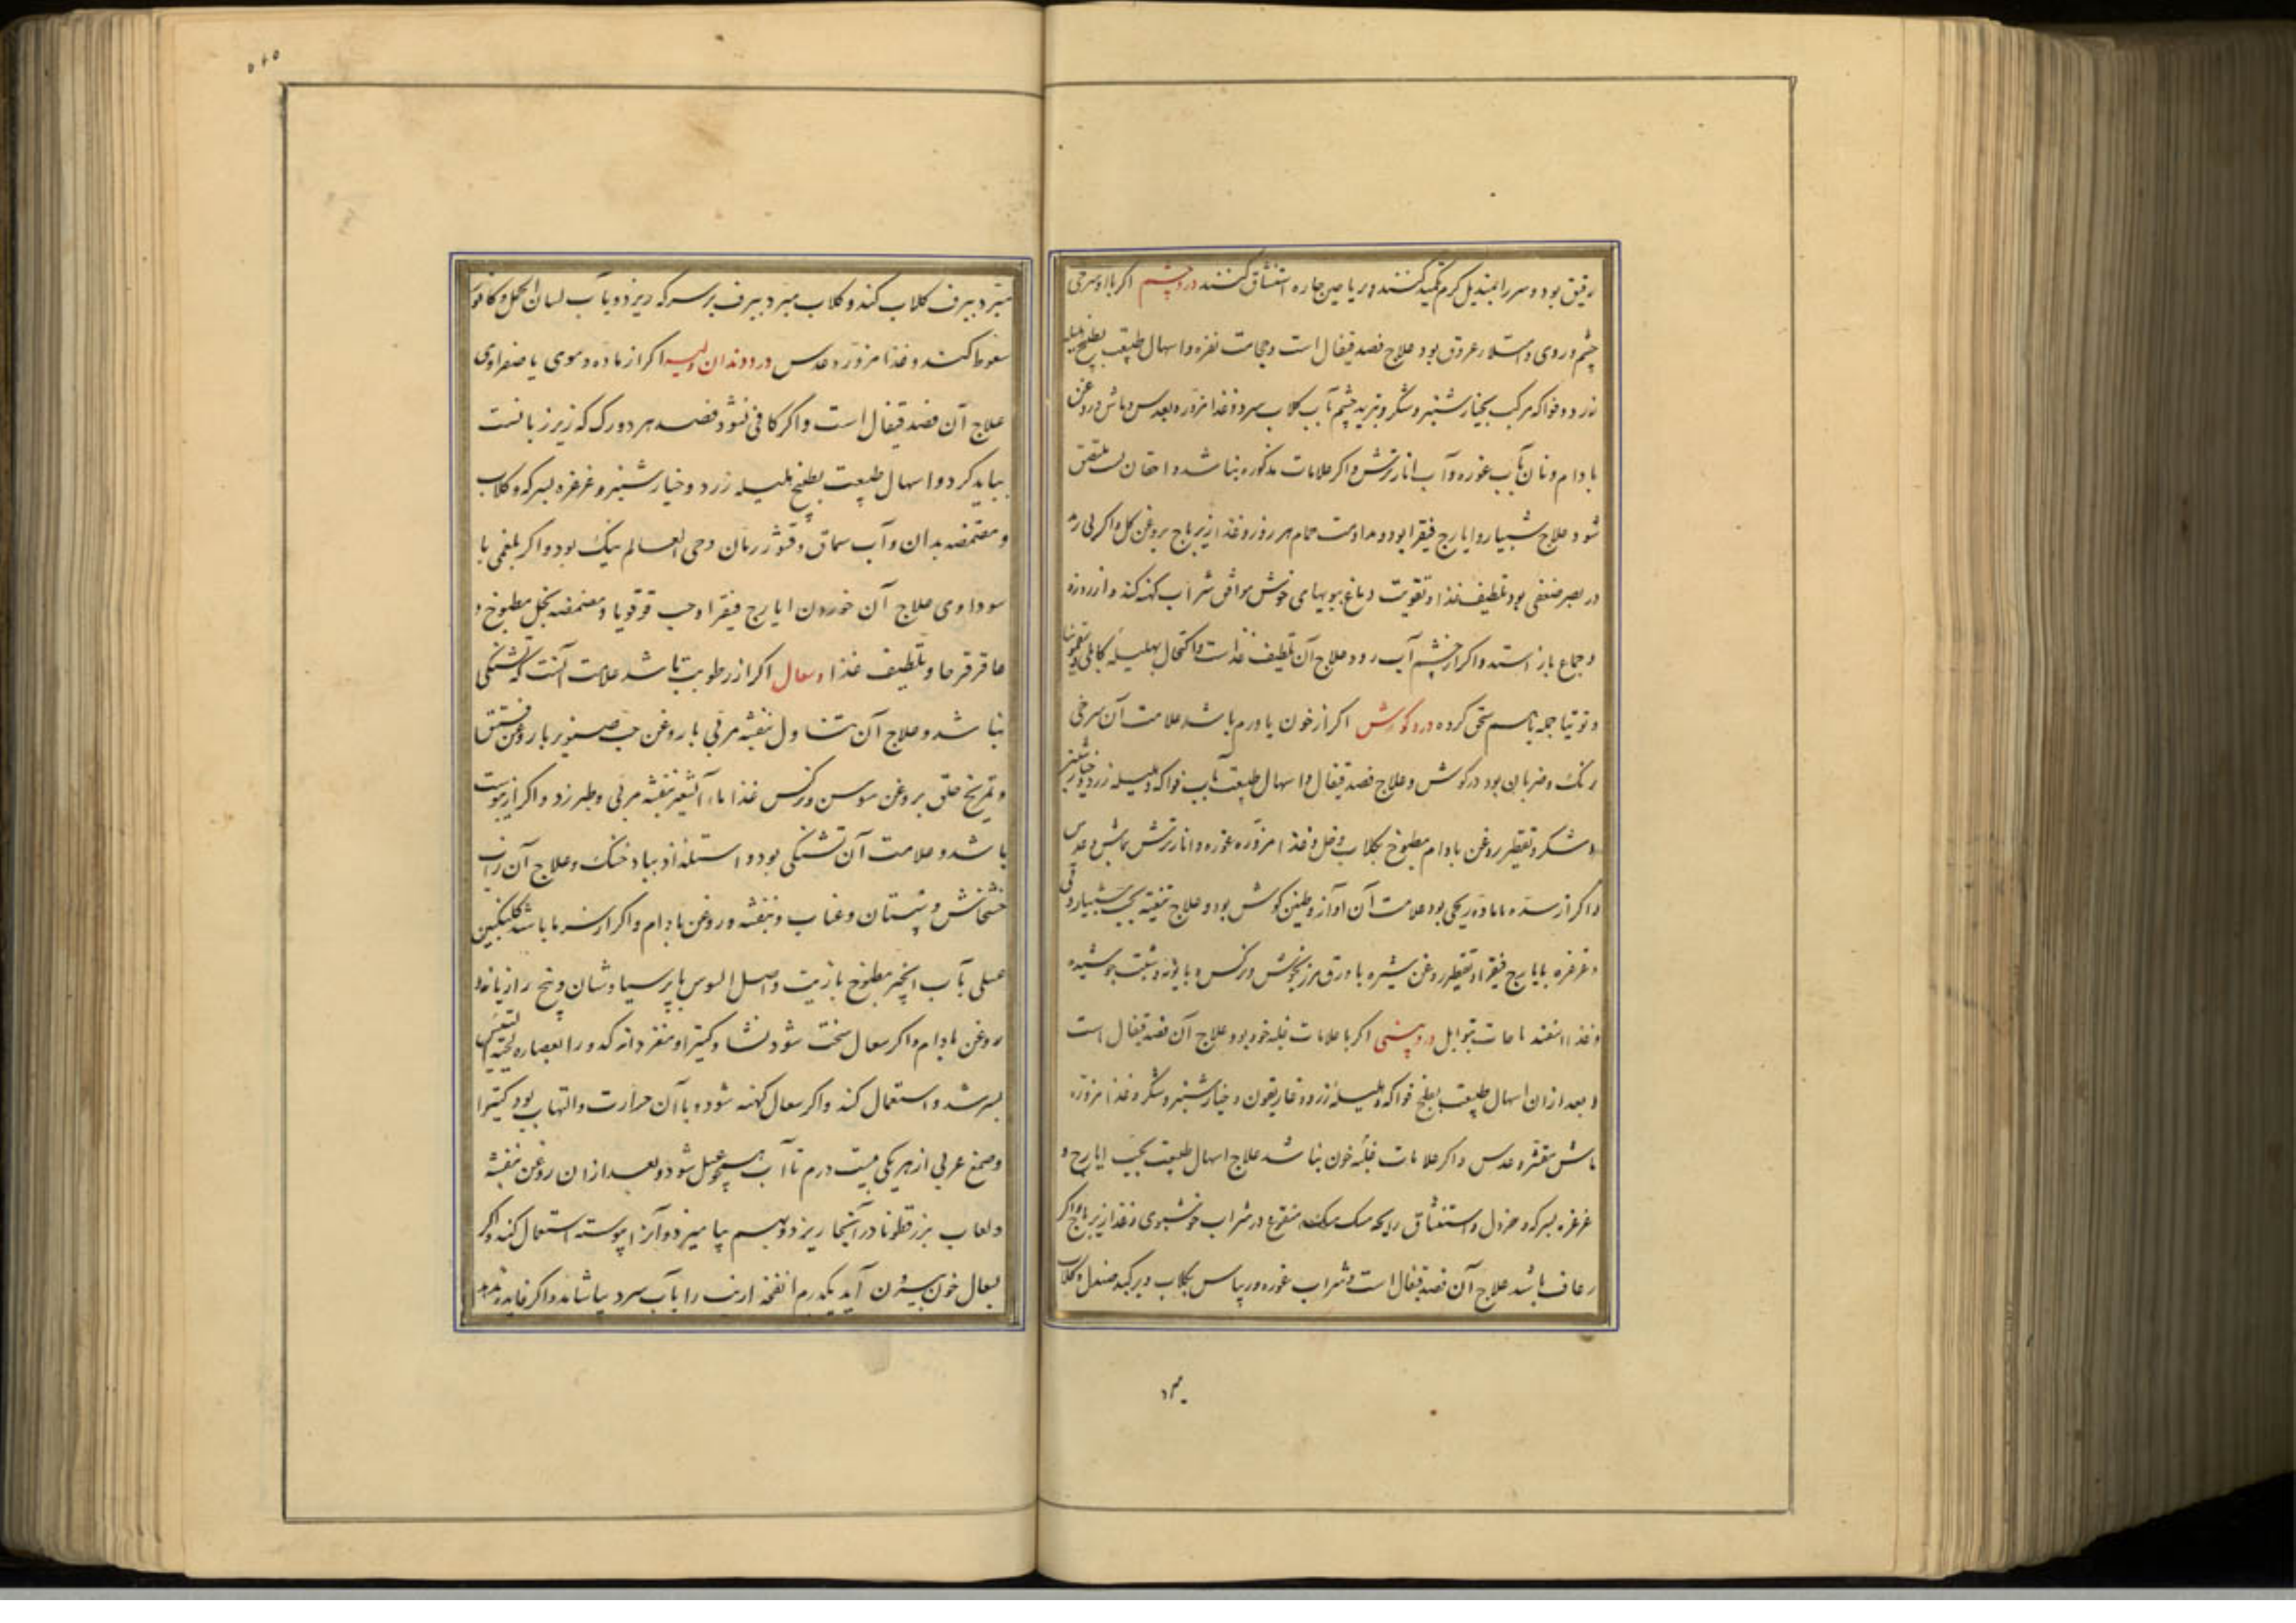 رقیق بود و سر را بمندیل کرم تکمید کنند و ریاحین حاره استنشاق کنند درد چشم اکر با او سرخی
چشم و روی و امتلاء عروق بود علاج فصد قیفال است و حجامت نقره و اسهال طبیعت بطبیخ هلیله
زرد و فواکه مرکب بخیارشنبر و شکر و تبرید چشم بآب کلاب سرد و غذا مزوره بعدس و ماش و روغن
بادام و نان بآب غوره و آب انار ترش و اکر علامات مذکوره نباشد و اجفان ملتصق
شود علاج شبیار و ایارج فیقرا بود و مداومت حمام هر روز و غذا زیرباج بروغن کل و اکر بی رمد
در بصر ضعفی بود تلطیف غذا و تقویت دماغ ببویهای خوش موافق شراب کهنه کند و از روزه
و جماع باز استد و اکر از چشم آب رود علاج آن تلطیف غذاست و اکتحال بهلیله کابلی
و توتیا جمله باهم سحق کرده درد کوش اکر از خون یا ورم باشد علامت آن سرخی
رنک و ضربان بود در کوش و علاج فصد قیفال و اسهال طبیعت بآب فواکه و هلیله زرد و خیارشنبر
و شکر و تقطیر روغن بادام مطبوخ بکلاب و خل و غذا مزوره غوره و انار ترش بماش و عدس
و اکر از سده یا ماده ریحی بود علامت آن آواز و طنین کوش بود و علاج تنقیه بحب شبیار و قی
و غرغره بایارج فیقرا و تقطیر روغن شیره با ورق مرزنجوش و نرکس و بابونه و شبت جوشیده
و غذا اسفید باجات بتوابل درد بینی اکر با علامات غلبه خون بود علاج آن فصد قیفال است
و بعد از ان اسهال طبیعت بطبخ فواکه و هلیله زرد و غاریقون و خیارشنبر و شکر و غذا مزوره
ماش مقشر و عدس و اکر علامات غلبه خون نباشد علاج اسهال طبیعت بحب ایارج و
غرغره بسرکه و خردل و استنشاق رایحه مسک منقوع در شراب خوشبوی و غذا زیرباج و اکر
رعاف باشد علاج آن فصد قیفال است و شراب غوره و ریباس بکلاب و بر کبد صندل و کلاب
۱۳۰
۵۴۵
مبرد ببرف کلاب کند و کلاب مبرد ببرف بر سر که ریزد و بآب لسان الحمل و کافور
سعوط کنند و غذا مزوره عدس درد دندان و لثه اکر از ماده دموی یا صفراوی
علاج آن فصد قیفال است و اکر کافی نشود فصد هر دو رک که زیر زبانست
بباید کرد و اسهال طبیعت بطبیخ هلیله زرد و خیارشنبر و غرغره بسرکه و کلاب
و مضمضه بدان و آب سماق و قشور رمان و حی العالم نیک بود و اکر بلغمی یا
سوداوی علاج آن خوردن ایارج فیقرا و حب قوقویا و مضمضه بخل مطبوخ و
عاقرقرحا و تلطیف غذا و سعال اکر از رطوبت باشد علامت آنست که تشنکی
نباشد و علاج آن تناول بنفشه مربی با روغن حب صنوبر یا روغن فستق
و تمریخ حلق بروغن سوسن و نرکس غذا ماء الشعیر بنفشه مربی و طبرزد و اکر از یبوست
باشد و علامت آن تشنکی بود و استلذاذ بباد خنک و علاج آن شراب
خشخاش و سپستان و عناب و بنفشه و روغن بادام و اکر از سرما باشد کلنکبین
عسلی بآب انجیر مطبوخ بازیت و اصل السوس با پرسیاوشان و بیخ رازیانه و
روغن بادام و اکر سعال سخت شود نشا و کتیرا و مغز دانه کدو را بعصاره لحیة التیس
بسرشد و استعمال کند و اکر سعال کهنه شود و با آن حرارت و التهاب بود کتیرا
و صمغ عربی از هر یکی بیست درم تا آب همچو عسل شود و بعد از ان روغن بنفشه
و لعاب بزرقطونا در آنجا ریزد و بهم بیامیزد و آنرا پیوسته استعمال کند و اکر
بسعال خون بیرون آید یکدرم انفخه ارنب را بآب سرد بیاشامد و اکر فایده ندهد